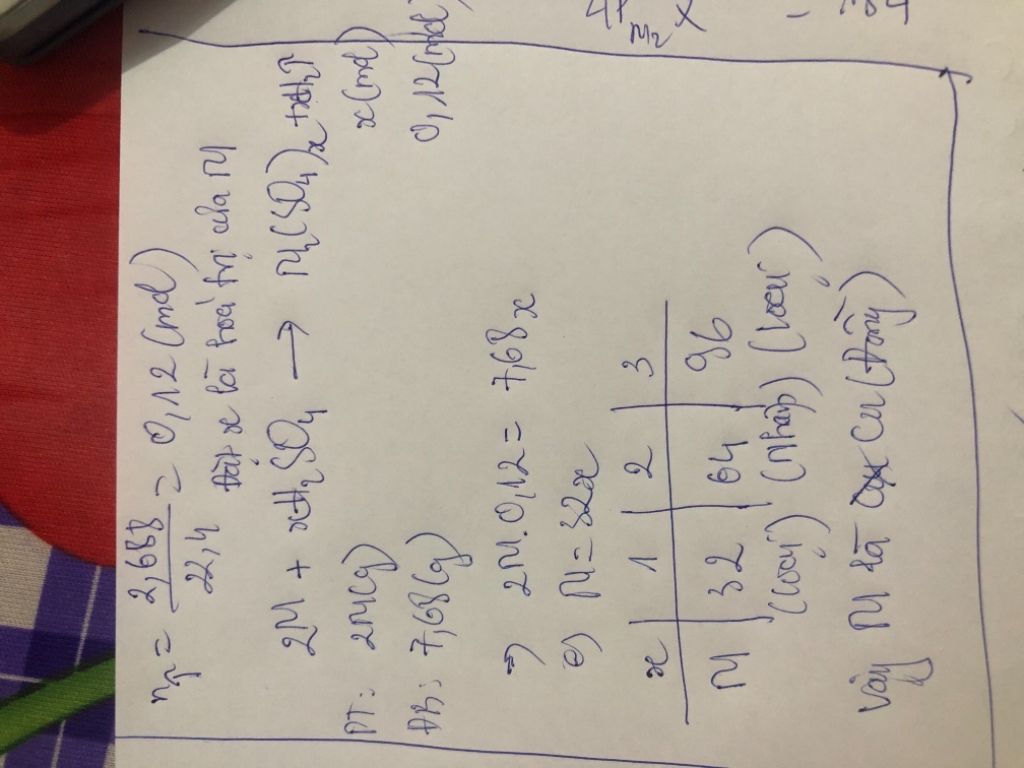 n₂ = 2,688 / 22,4 = 0,12 (mol)
Đặt x là hoá trị của M
2M + xH₂SO₄ → M₂(SO₄)ₓ + xH₂↑
PT: 2M(g) x(mol)
ĐB: 7,68(g) 0,12(mol)
=> 2M.0,12 = 7,68x
M = 32x
x | 1 | 2 | 3
M | 32 | 64 | 96
(Loại) (Nhận) (Loại)
Vậy M là Cu (Đồng)
M₂